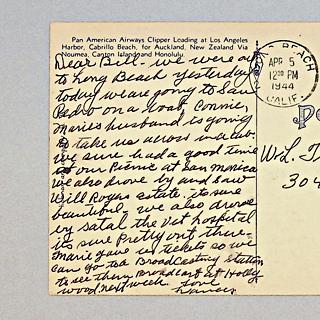 Pan American Airways Clipper Loading at Los Angeles
Harbor, Cabrillo Beach, for Auckland, New Zealand Via
Noumea, Canton Island and Honolulu.
Dear Bill - we were out
to Long Beach yesterday
today we are going to San
Pedro on a boat Connie,
Maries husband is going
to take us across in a sub.
we sure had a good time
at our Picnic at San Monica
we also drove by and saw
Will Rogers estate. its sure
beautiful, we also drove
by Satal the Vet hospital
its sure Pretty out there
Marie gave us tickets so we
can go to a Broadcasting station
to see them Broadcast at Holly
wood, next week. Love
BEACH
APR 5
12 PM
1944
CALIF.
W.L. T
304